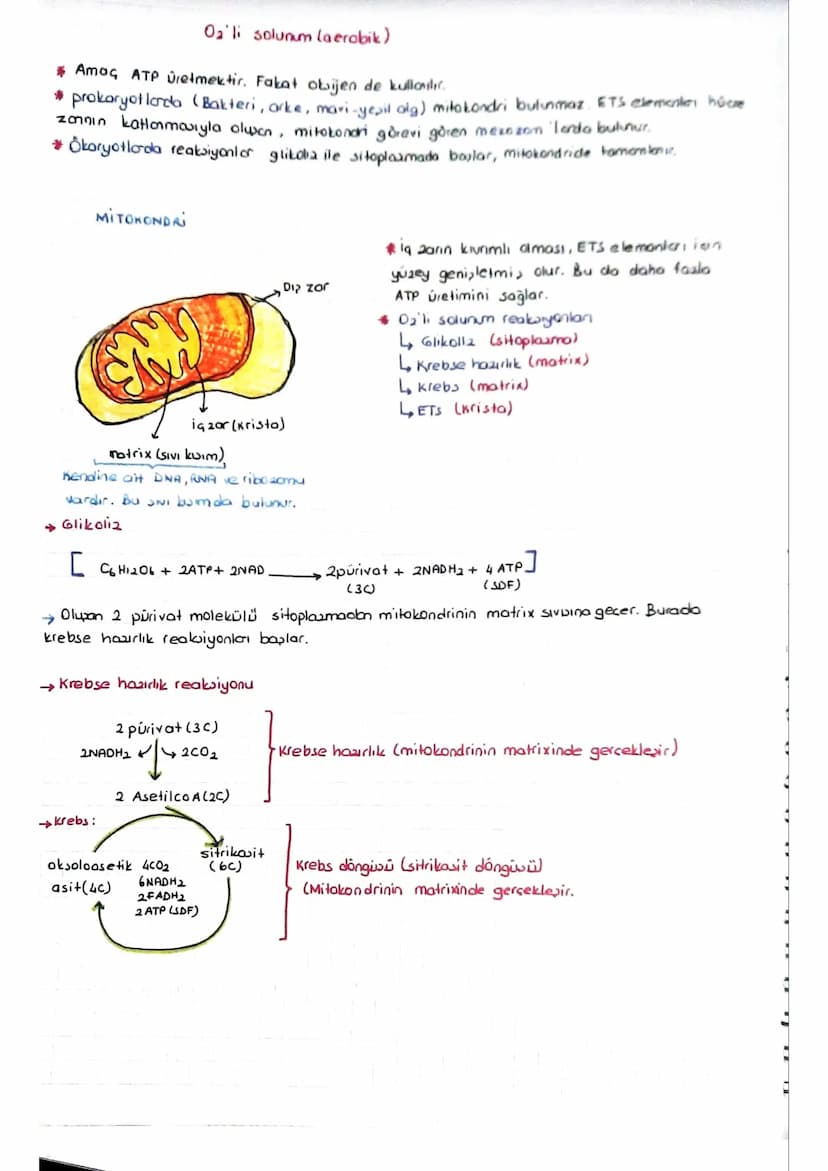 O₂'li solunum (aerobik)
* Amaç ATP üretmektir. Fakat oksijen de kullanılır.
* prokaryotlarda (Bakteri, arke, mavi-yeşil alg) mitokondri bulunmaz. ETS elemenleri hücre
zarının katlanmasıyla oluşan, mitokondri görevi gören mezozom'larda bulunur.
* Ökaryotlarda reaksiyonlar glikoliz ile sitoplazmada başlar, mitokondride tamamlanır.
MİTOKONDRİ
* iç zarın kıvrımlı olması, ETS elemanları için
yüzey genişletmiş olur. Bu da daha fazla
ATP üretimini sağlar.
* O₂'li solunum reaksiyonları
↳ Glikoliz (sitoplazma)
↳ Krebse hazırlık (matrix)
↳ Krebs (matrix)
↳ ETS (krista)
Dış zar
iç zar (krista)
matrix (sıvı kısım)
Kendine ait DNA, RNA ve ribozomu
vardır. Bu sıvı kısımda bulunur.
→ Glikoliz
[ C₆H₁₂O₆ + 2ATP + 2NAD → 2pürivat + 2NADH₂ + 4 ATP ]
(3C) (SDF)
→ Oluşan 2 pürivat molekülü sitoplazmadan mitokondrinin matrix sıvısına geçer. Burada
krebse hazırlık reaksiyonları başlar.
→ Krebse hazırlık reaksiyonu
2 pürivat (3C)
2NADH₂ 2CO₂
2 AsetilcoA (2C)
Krebse hazırlık (mitokondrinin matrixinde gerçekleşir)
→ Krebs:
sitrikasit
(6C)
oksaloasetik
asit (4C)
4CO₂
6NADH₂
2FADH₂
2 ATP (SDF)
Krebs döngüsü (sitrikasit döngüsü)
(Mitokondrinin matrixinde gerçekleşir.